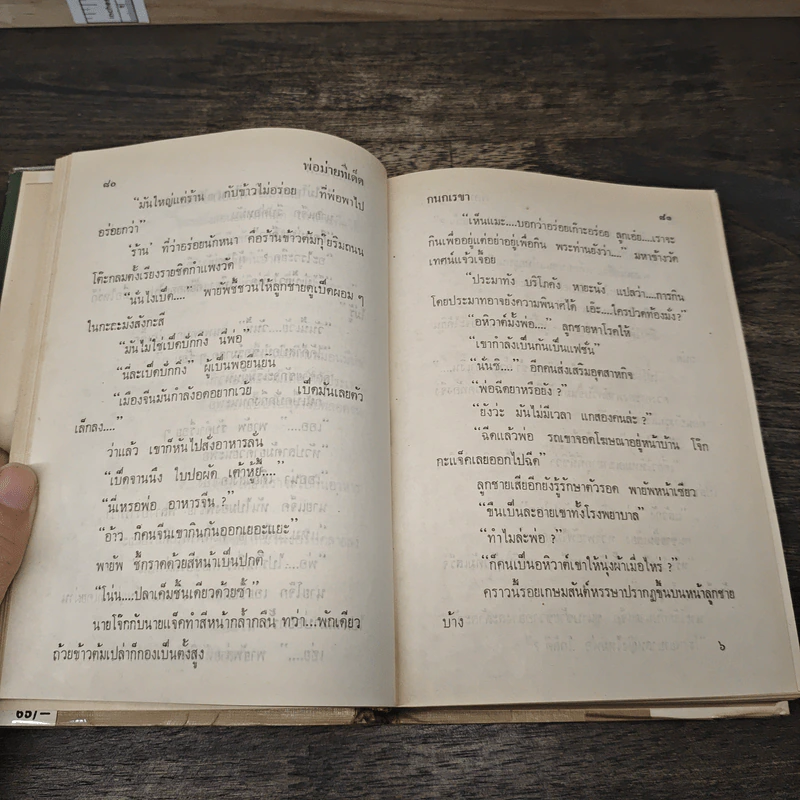 ๘๐
พ่อม่ายทีเด็ด
“มันใหญ่แต่ร้าน กับข้าวไม่อร่อย ที่พ่อพาไป
อร่อยกว่า”
‘ร้าน’ ที่ว่าอร่อยนักหนา คือร้านข้าวต้มกุ๊ยริมถนน
โต๊ะกลมตั้งเรียงรายชิดกำแพงวัด
“นั่นไงเป็ด....” พายัพชี้ชวนให้ลูกชายดูเป็ดผอม ๆ
ในกะละมังสังกะสี
“มันไม่ใช่เป็ดปักกิ่ง นี่พ่อ”
“นี่ละเป็ดปักกิ่ง” ผู้เป็นพ่อยืนยัน
“เมืองจีนมันกำลังอดอยากเว้ย เป็ดมันเลยตัว
เล็กลง....”
ว่าแล้ว เขาก็หันไปสั่งอาหารลั่น
“เป็ดจานนึง ใบปอผัด เต้าหู้ยี้....”
“นี่เหรอพ่อ อาหารจีน ?”
“อ้าว ก็คนจีนเขากินกันออกเยอะแยะ”
พายัพ ชี้กราดด้วยสีหน้าเป็นปกติ
“โน่น....ปลาเค็มชิ้นเดียวด้วยซ้ำ”
นายโจ๊กกับนายแจ็คทำสีหน้ากล้ำกลืน ทว่า...พักเดียว
ถ้วยข้าวต้มเปล่าก็กองเป็นตั้งสูง
65/–
กนกเรขา
๘๑
“เห็นแมะ....บอกว่าอร่อยเก๊าะอร่อย ลูกเอ๋ย....เราจะ
กินเพื่ออยู่แต่อย่าอยู่เพื่อกิน พระท่านยังว่า....” มหาข้างวัด
เทศน์แจ้วเจื้อย
“ประมาทัง บริโภคัง หายะนัง แปลว่า....การกิน
โดยประมาทอาจยังความพินาศได้ เอ๊ะ....ใครปวดท้องมั่ง?”
“อหิวาต์มั้งพ่อ....” ลูกชายหาโรคให้
“เขากำลังเป็นกันเป็นแฟชั่น”
“นั่นซิ....” อีกคนส่งเสริมอุตสาหกิจ
“พ่อฉีดยาหรือยัง ?”
“ยังว่ะ มันไม่มีเวลา แกสองคนล่ะ ?”
“ฉีดแล้วพ่อ รถเขาจอดโฆษณาอยู่หน้าบ้าน โจ๊ก
กะแจ็คเลยออกไปฉีด”
ลูกชายเสียอีกยังรู้รักษาตัวรอด พายัพหน้าเซียว
“ขืนเป็นละอายเขาทั้งโรงพยาบาล”
“ทำไมล่ะพ่อ ?”
“ก็คนเป็นอหิวาต์เขาให้นุ่งผ้าเมื่อไหร่ ?”
คราวนี้รอยเกษมสันต์หรรษาปรากฏขึ้นบนหน้าลูกชาย
บ้าง
๖